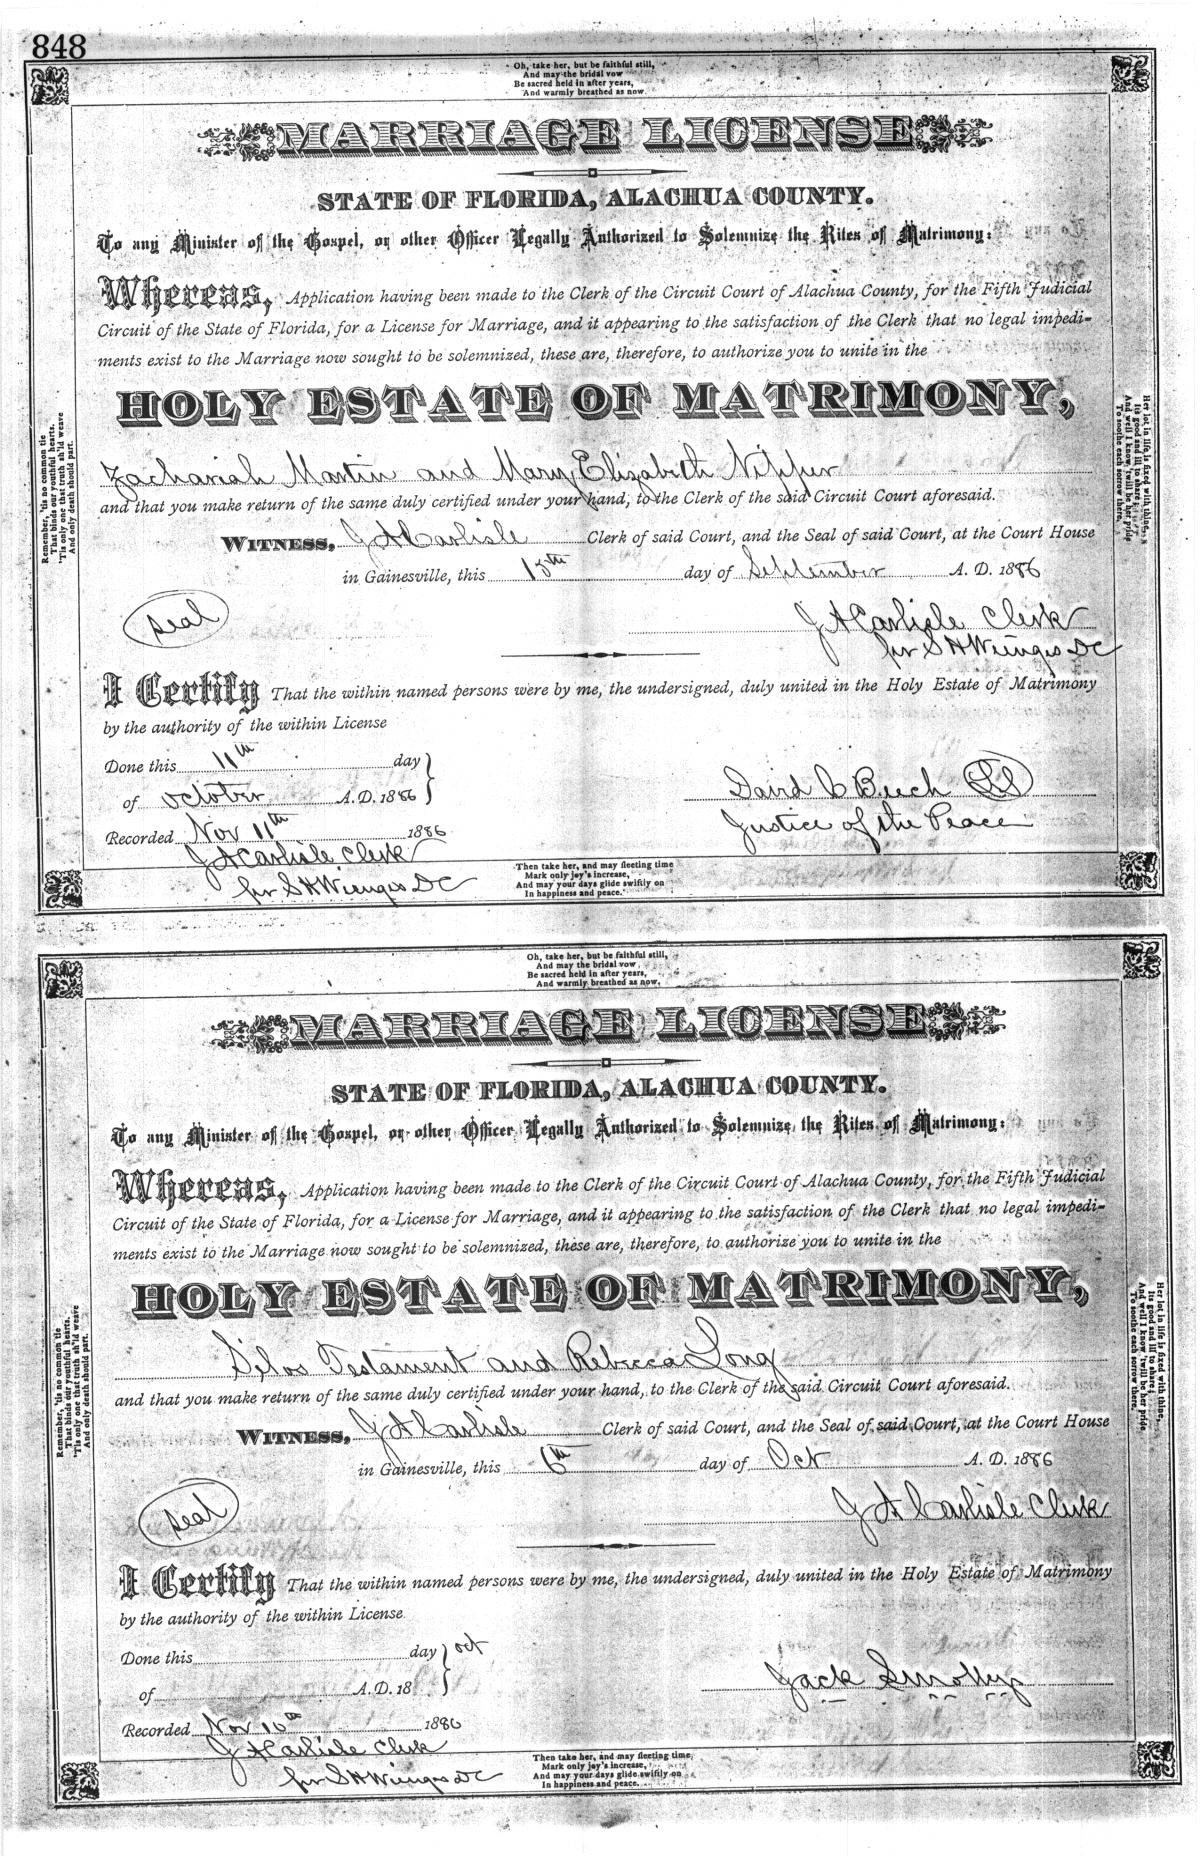 848
Oh, take her, but be faithful still,
And may the bridal vow
Be sacred held in after years,
And warmly breathed as now.
MARRIAGE LICENSE
STATE OF FLORIDA, ALACHUA COUNTY.
To any Minister of the Gospel, or other Officer Legally Authorized to Solemnize the Rites of Matrimony:
Whereas, Application having been made to the Clerk of the Circuit Court of Alachua County, for the Fifth Judicial
Circuit of the State of Florida, for a License for Marriage, and it appearing to the satisfaction of the Clerk that no legal impedi-
ments exist to the Marriage now sought to be solemnized, these are, therefore, to authorize you to unite in the
HOLY ESTATE OF MATRIMONY,
Zachariah Martin and Mary Elizabeth Nipper
and that you make return of the same duly certified under your hand, to the Clerk of the said Circuit Court aforesaid.
WITNESS, J A Carlisle Clerk of said Court, and the Seal of said Court, at the Court House
in Gainesville, this 13th day of September A. D. 1886
Seal
J A Carlisle Clerk
per S H Wienges DC
I Certify That the within named persons were by me, the undersigned, duly united in the Holy Estate of Matrimony
by the authority of the within License
Done this 11th day
of October A. D. 1886
David C Beech LS
Justice of the Peace
Recorded Nov 11th 1886
J A Carlisle Clerk
per S H Wienges DC
Then take her, and may fleeting time
Mark only joy's increase,
And may your days glide swiftly on
In happiness and peace.
Remember, 'tis no common tie
That binds our youthful hearts.
'Tis only one that truth sh'ld weave
And only death should part.
Her lot in life is fixed with thine,
Its good and ill to share
And well I know 'twill be her pride
To soothe each sorrow there.
Oh, take her, but be faithful still,
And may the bridal vow
Be sacred held in after years,
And warmly breathed as now.
MARRIAGE LICENSE
STATE OF FLORIDA, ALACHUA COUNTY.
To any Minister of the Gospel, or other Officer Legally Authorized to Solemnize the Rites of Matrimony:
Whereas, Application having been made to the Clerk of the Circuit Court of Alachua County, for the Fifth Judicial
Circuit of the State of Florida, for a License for Marriage, and it appearing to the satisfaction of the Clerk that no legal impedi-
ments exist to the Marriage now sought to be solemnized, these are, therefore, to authorize you to unite in the
HOLY ESTATE OF MATRIMONY,
Silos Testament and Rebecca Long
and that you make return of the same duly certified under your hand, to the Clerk of the said Circuit Court aforesaid.
WITNESS, J A Carlisle Clerk of said Court, and the Seal of said Court, at the Court House
in Gainesville, this 6th day of Oct A. D. 1886
Seal
J A Carlisle Clerk
I Certify That the within named persons were by me, the undersigned, duly united in the Holy Estate of Matrimony
by the authority of the within License
Done this day oct
of A. D. 18
Jack
Recorded Nov 10th 1886
J A Carlisle Clerk
per S H Wienges DC
Then take her, and may fleeting time
Mark only joy's increase,
And may your days glide swiftly on
In happiness and peace.
Remember, 'tis no common tie
That binds our youthful hearts.
'Tis only one that truth sh'ld weave
And only death should part.
Her lot in life is fixed with thine,
Its good and ill to share;
And well I know 'twill be her pride
To soothe each sorrow there.